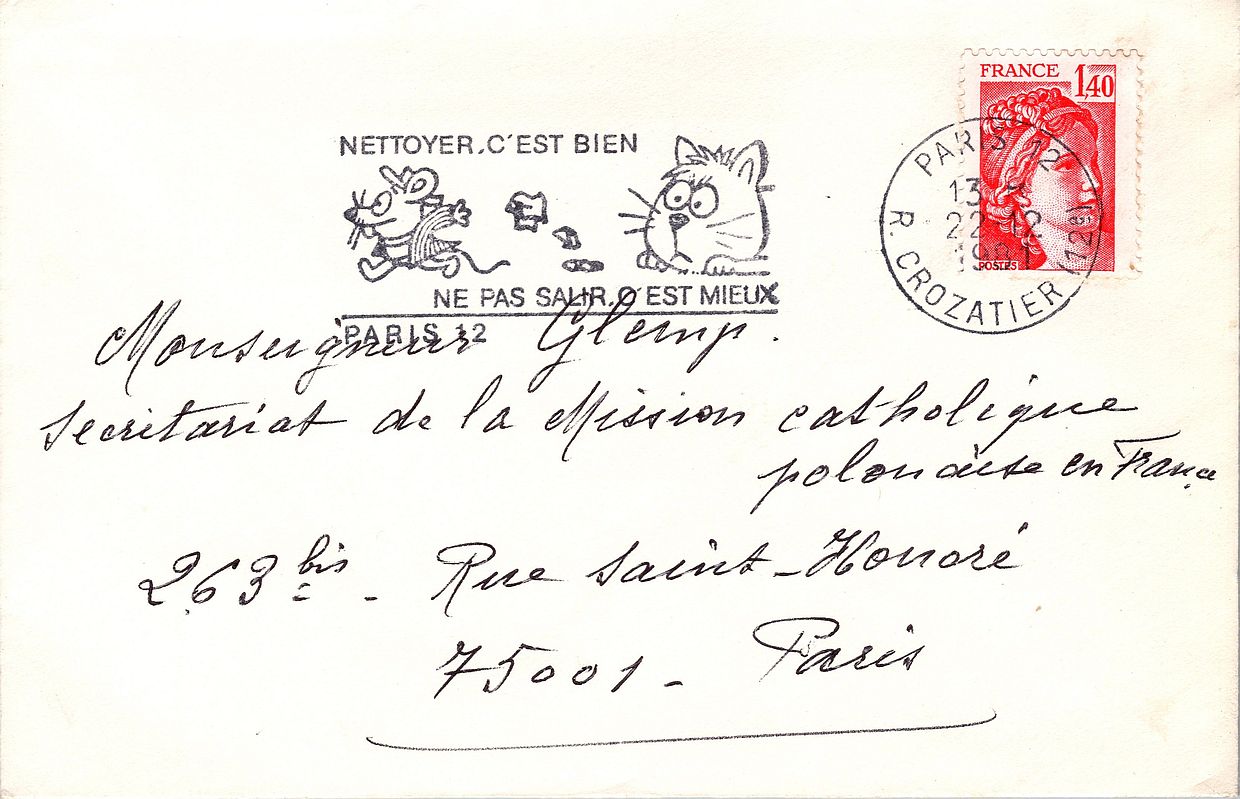 FRANCE 1,40
POSTES
PARIS 12
13 H
22-12
1981
R. CROZATIER (12e)
NETTOYER.C'EST BIEN
NE PAS SALIR.C'EST MIEUX
PARIS 12
Monseigneur Glemp.
Secrétariat de la Mission catholique
polonaise en France
263 bis - Rue Saint-Honoré
75001 - Paris